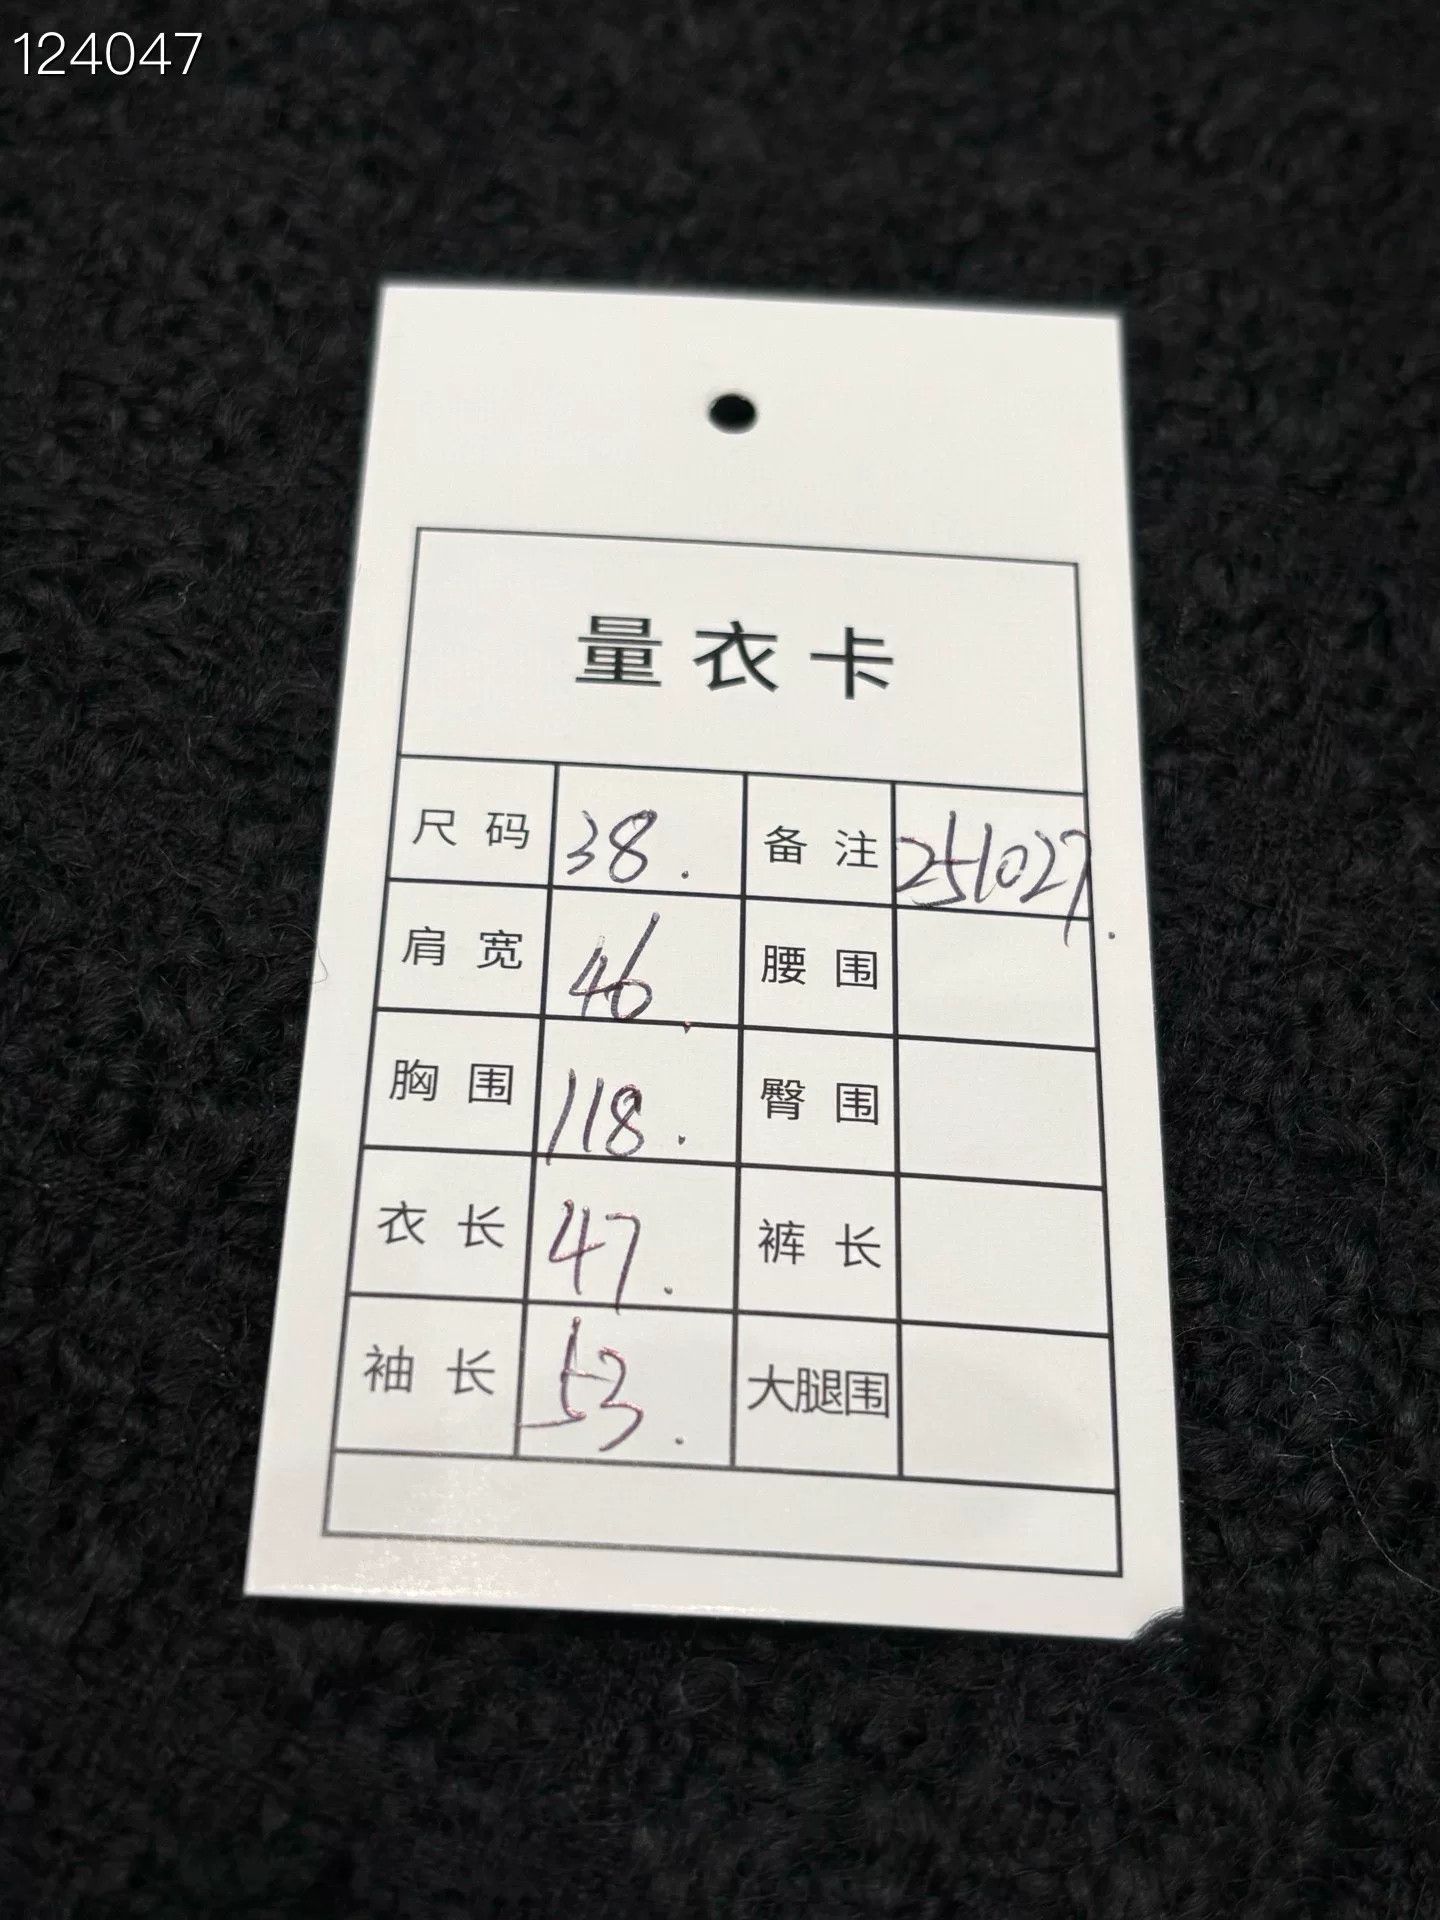 124047
量衣卡
尺码 38. 备注 251027.
肩宽 46. 腰围
胸围 118. 臀围
衣长 47. 裤长
袖长 53. 大腿围